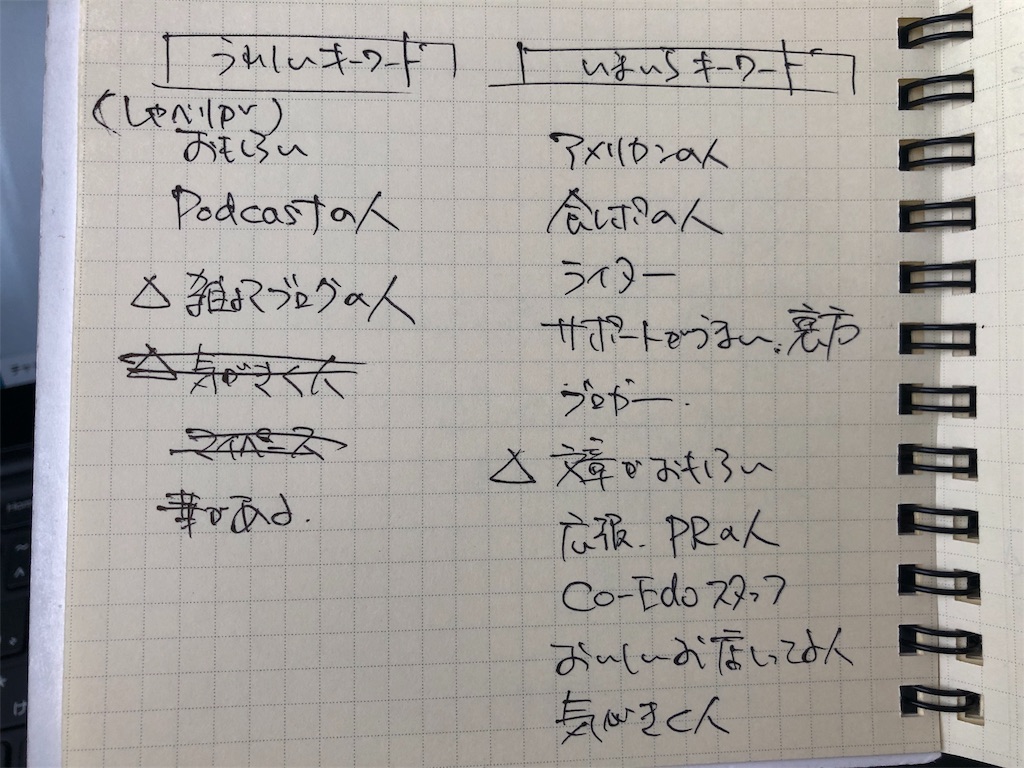 うれしいキーワード
(しゃべりが)
おもしろい
Podcastの人
△ 雑な ブログの人
△ 気がきく人
マイペース
華がある.
いまいちキーワード
アメリカンの人
食レポの人
ライター
サポートがうまい、裏方
ブロガー.
△ 文章がおもしろい
広報.PRの人
Co-Edoスタッフ
おいしいお店しってる人
気がきく人